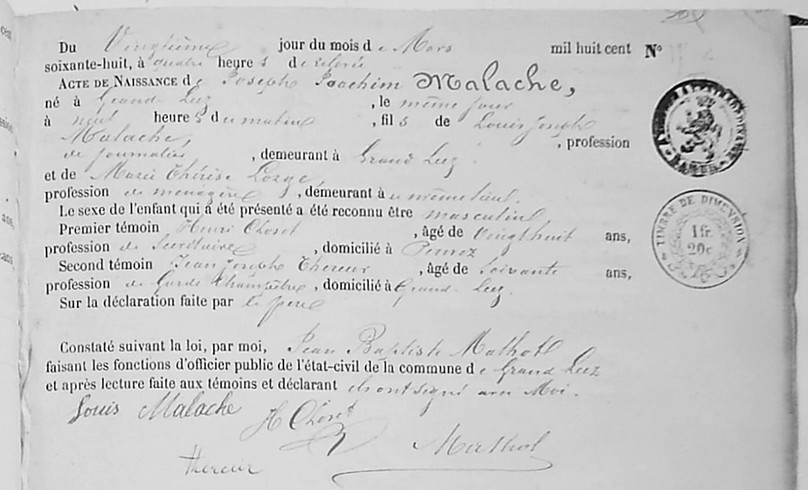 Du Vingtième jour du mois de Mars mil huit cent N°
soixante-huit, à quatre heures de relevée
ACTE DE NAISSANCE de Joseph Joachim Malache,
né à Grand Leez, le même jour
à neuf heures du matin, fils de Louis Joseph
Malache, profession
de journalier, demeurant à Grand Leez
et de Marie Thérèse Lorge,
profession de ménagère, demeurant à u même lieu.
Le sexe de l'enfant qui a été présenté a été reconnu être masculin
Premier témoin Henri Choset, âgé de Vingt huit ans,
profession de Secrétaire, domicilié à
Second témoin Jean Joseph Thereur, âgé de Soixante ans,
profession de Garde Champêtre, domicilié à Grand-Leez.
Sur la déclaration faite par le père
Constaté suivant la loi, par moi, Jean Baptiste Mathot
faisant les fonctions d'officier public de l'état-civil de la commune de Grand Leez
et après lecture faite aux témoins et déclarant ils ont signé avec Moi.
Louis Malache H Choset
Mathot
thereur
TIMBRE DE DIMENSION
1 fr.
20c